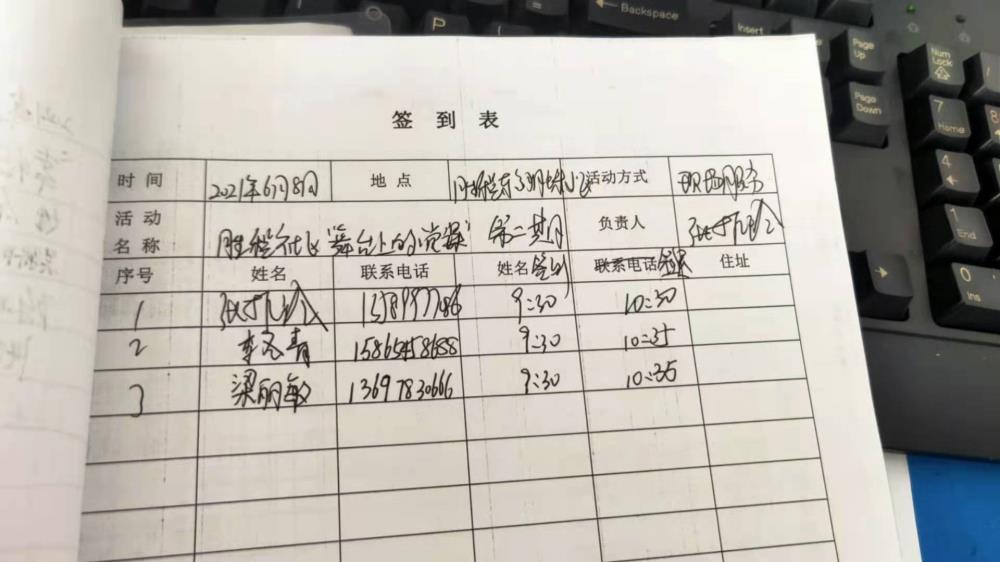 Backspace
P
Insert
Page Up
Page Down
Num Lock
7 Home
8
4
1 End
0 Ins
签到表
时间 2021年6月8日 地点 活动方式 现场服务
活动名称 胜 社区"舞台上的小党课"第二期 负责人
序号 姓名 联系电话 姓名签到 联系电话 住址
1 9:30 10:30
2 李冬青 9:30 10:35
3 梁丽敏 13697830666 9:30 10:35